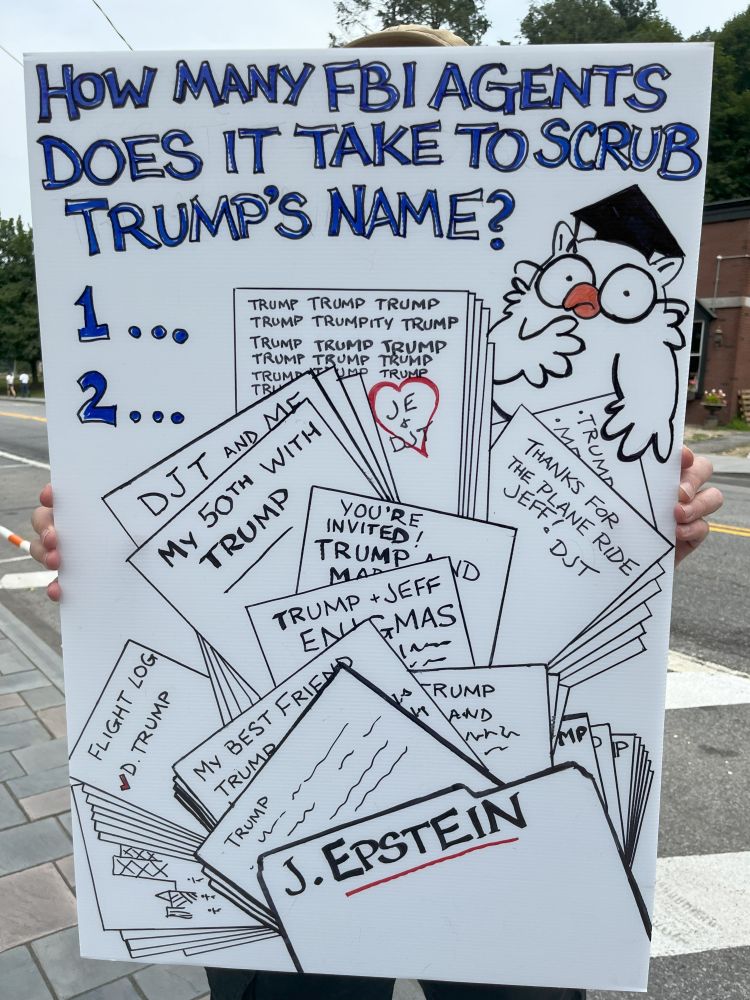 HOW MANY FBI AGENTS
DOES IT TAKE TO SCRUB
TRUMP'S NAME?
1...
2...
TRUMP TRUMP TRUMP
TRUMP TRUMPITY TRUMP
TRUMP TRUMP TRUMP
TRUMP TRUMP TRUMP
TRUMP TRUMP TRUMP
JE
&
DJT
DJT AND ME
MY 50TH WITH
TRUMP
YOU'RE
INVITED!
TRUMP
AND
THANKS FOR
THE PLANE RIDE
JEFF! DJT
TRUMP
TRUMP + JEFF
ENIGMAS
FLIGHT LOG
D. TRUMP
MY BEST FRIEND
TRUMP
TRUMP
AND
TRUMP
MP
P
J. EPSTEIN